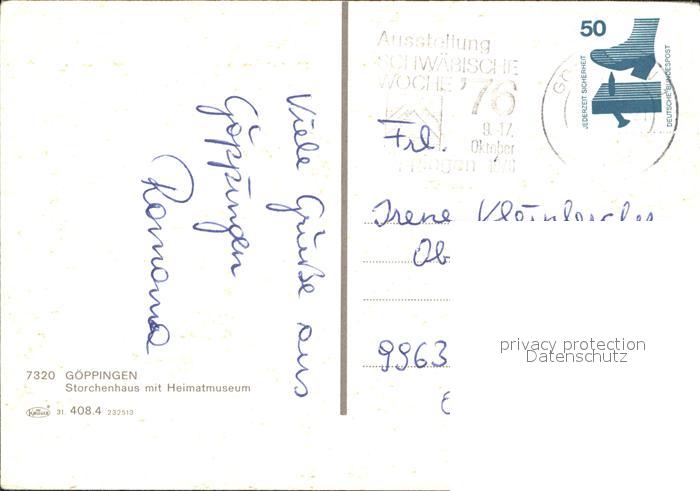 Viele Grüße aus
Göppingen
Romana
7320 GÖPPINGEN
Storchenhaus mit Heimatmuseum
Krüger 31. 408.4 232513
Ausstellung
SCHWÄBISCHE
WOCHE '76
9.-17.
Oktober
1976
50
JEDERZEIT SICHERHEIT
DEUTSCHE BUNDESPOST
Frl.
Irene
Ob
9963
privacy protection
Datenschutz